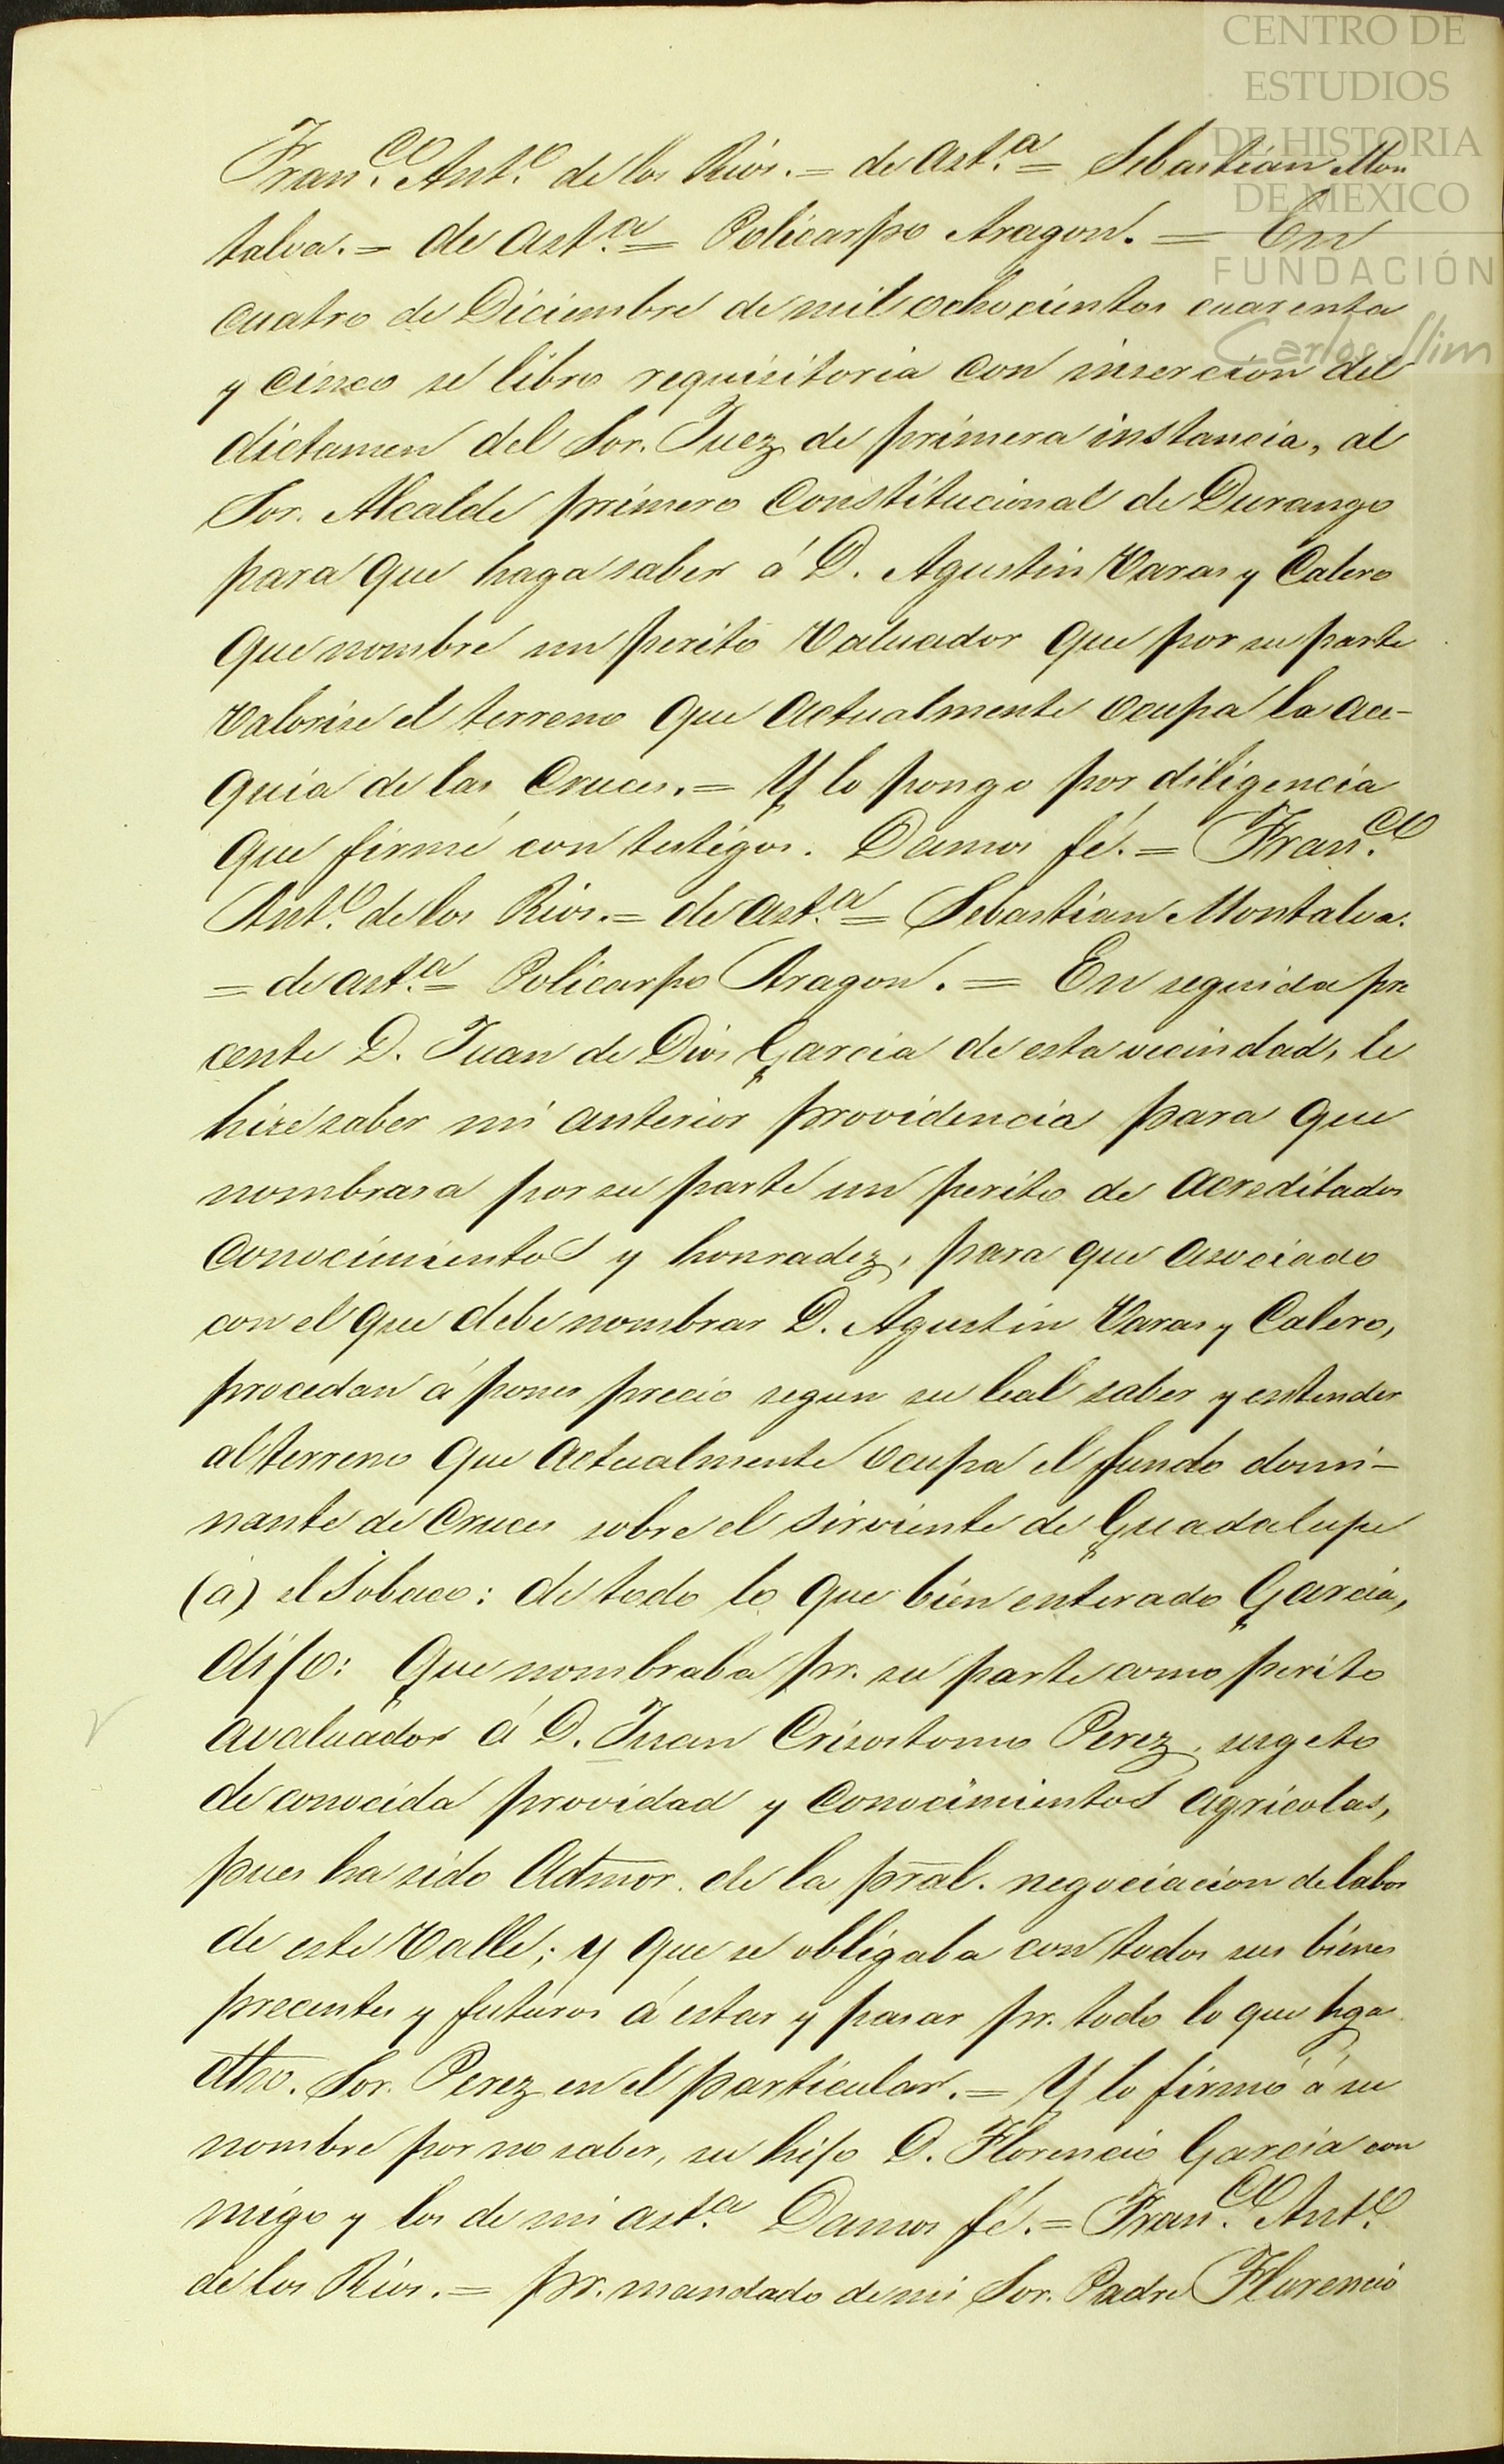 CENTRO DE
ESTUDIOS
DE HISTORIA
DE MEXICO
FUNDACIÓN
Carlos Slim
Fran.co Ant.o de los Rios. = de ast.a = Sebastian Mon
talva. = de ast.a = Policarpo Aragon. = En
cuatro de Diciembre de mil ochocientos cuarenta
y cinco se libro requisitoria con insercion del
dictamen del Sor. Juez de primera instancia, al
Sor. Alcalde primero Constitucional de Durango
para que haga saber á D. Agustin Varas y Calero
que nombre un perito Valuador que por su parte
valorise el terreno que actualmente ocupa la ace-
quia de las Cruces. = Y lo pongo por diligencia
que firmé con testigos. Damos fé. = Fran.co
Ant.o de los Rios. = de ast.a = Sebastian Montalva.
= de ast.a = Policarpo Aragon. = En seguida pre
cente D. Juan de Dios Garcia de esta vecindad, le
hize saber mi anterior providencia para que
nombrara por su parte un perito de acreditados
conocimientos y honradez, para que asociado
con el que debe nombrar D. Agustin Varas y Calero,
procedan á poner precio segun su leal saber y entender
al terreno que actualmente ocupa el fundo domi-
nante de Cruces sobre el sirviente de Guadalupe
(á) el Sobaco: de todo lo que bien enterado Garcia,
dijo: Que nombraba pr. su parte como perito
avaluador á D. Juan Crisostomo Perez, sugeto
de conocida providad y conocimientos agricolas,
pues ha sido Admor. de la pral. negociacion de labor
de este Valle; y que se obligaba con todos sus bienes
precentes y futuros á estar y pasar pr. todo lo que hga
dho. Sor. Perez en el particular. = Y lo firmó á su
nombre por no saber, su hijo D. Florencio Garcia con
migo y los de mi ast.a Damos fé. = Fran.co Ant.o
de los Rios. = pr. mandado de mi Sor. Padre Florencio